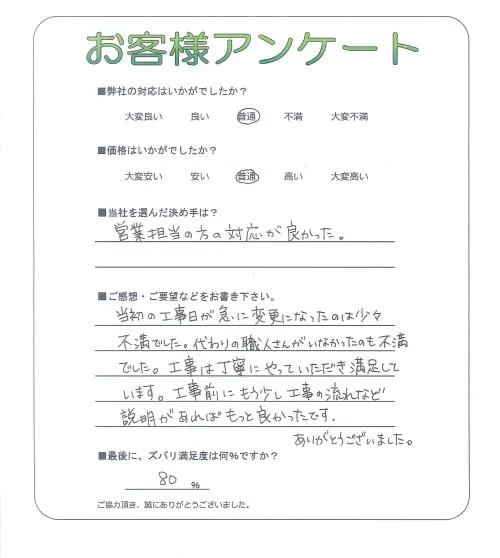 お客様アンケート
■弊社の対応はいかがでしたか？
大変良い 良い 普通 不満 大変不満
■価格はいかがでしたか？
大変安い 安い 普通 高い 大変高い
■当社を選んだ決め手は？
営業担当の方の対応が良かった。
■ご感想・ご要望などをお書き下さい。
当初の工事日が急に変更になったのは少々
不満でした。代わりの職人さんがいなかったのも不満
でした。工事は丁寧にやっていただき満足して
います。工事前にもう少し工事の流れなど
説明があればもっと良かったです.
ありがとうございました。
■最後に、ズバリ満足度は何%ですか？
80 %
ご協力頂き、誠にありがとうございました。